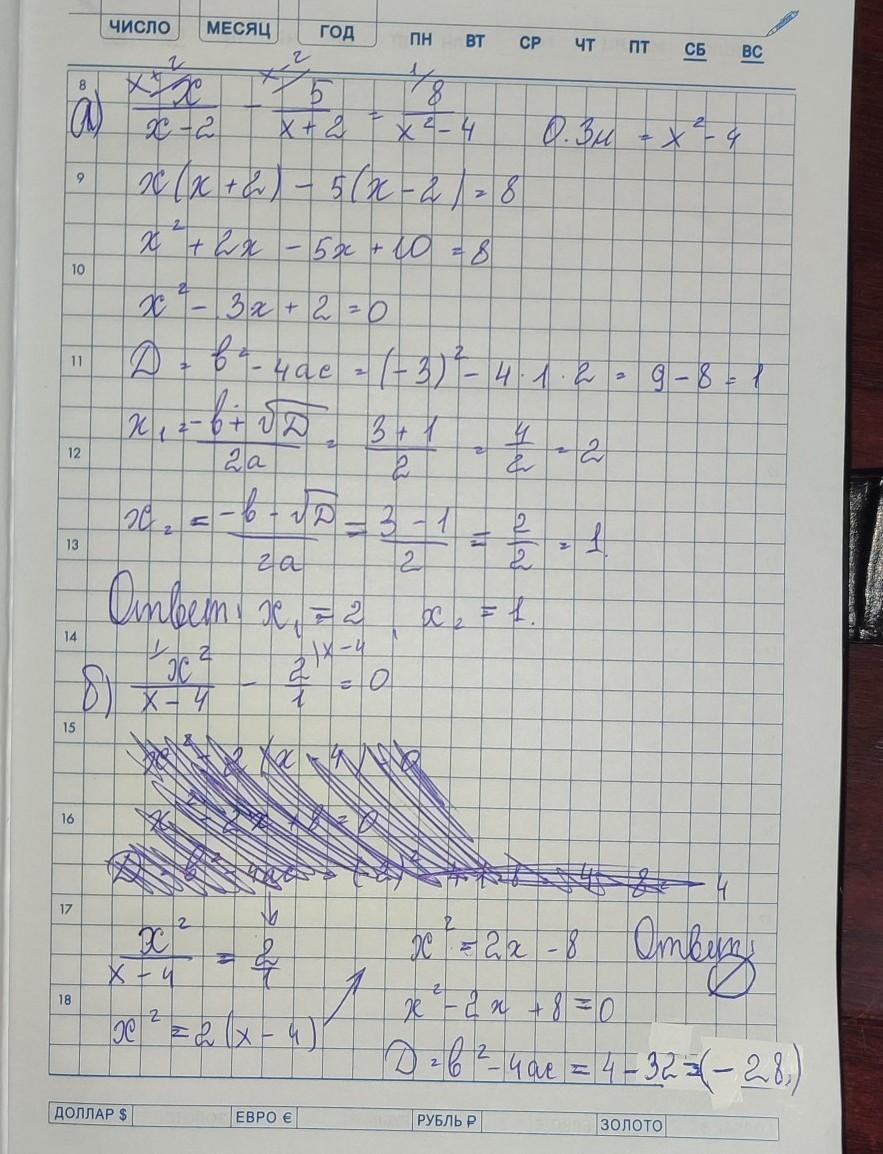 ЧИСЛО МЕСЯЦ ГОД ПН ВТ СР ЧТ ПТ СБ ВС
8
а) x/(x-2) - 5/(x+2) = 8/(x²-4) О.Зн = x² - 4
9
x(x+2) - 5(x-2) = 8
x² + 2x - 5x + 10 = 8
10
x² - 3x + 2 = 0
11
D = b² - 4ac = (-3)² - 4·1·2 = 9 - 8 = 1
12
x₁ = (-b+√D)/2a = (3+1)/2 = 4/2 = 2
13
x₂ = (-b-√D)/2a = (3-1)/2 = 2/2 = 1.
Ответ: x₁ = 2, x₂ = 1.
14
б) x²/(x-4) - 2/1 = 0
15
x² - 2(x-4) = 0
16
x² - 2x + 8 = 0
17
x²/(x-4) = 2/1 x² = 2x - 8 Ответ: ∅
18
x² = 2(x-4) x² - 2x + 8 = 0
D = b² - 4ac = 4 - 32 = (-28)
ДОЛЛАР $ ЕВРО € РУБЛЬ ₽ ЗОЛОТО